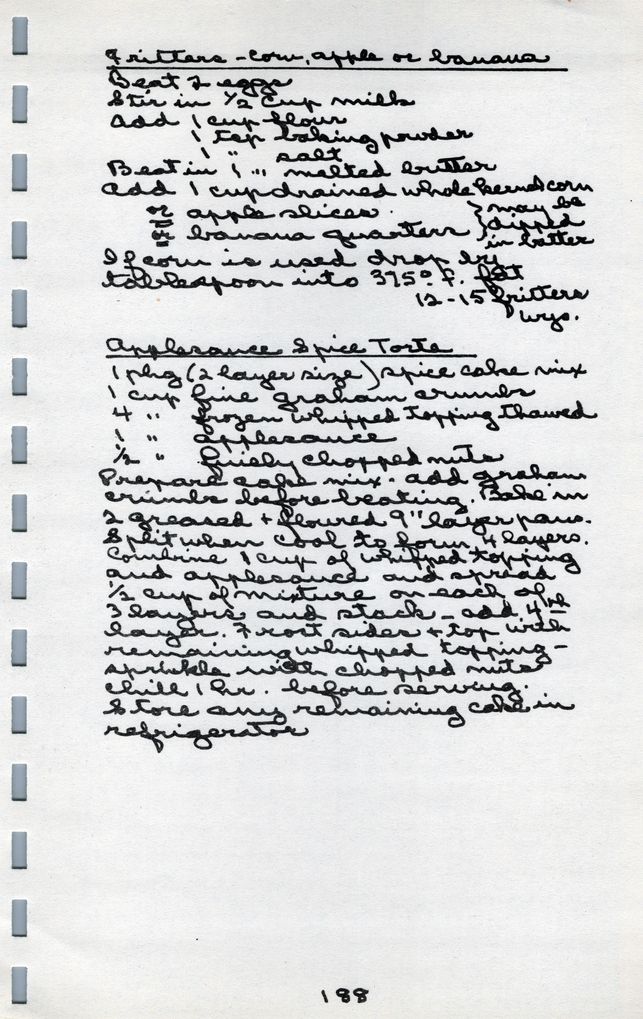 Fritters - corn, apple or banana
Beat 2 eggs
Stir in 1/2 cup milk
Add 1 cup flour
1 tsp baking powder
1 " salt
Beat in 1 " melted butter
Add 1 cup drained whole kernel corn
or apple slices } may be
or banana quarters } dipped
in batter
If corn is used drop by
tablespoon into 375° F. fat
12-15 fritters
Wys.
Applesauce Spice Torte
1 pkg (2 layer size) spice cake mix
1 cup fine graham crumbs
4 " frozen whipped topping thawed
1 " applesauce
1/2 " finely chopped nuts
Prepare cake mix. add graham
crumbs before beating. Bake in
2 greased + floured 9" layer pans.
Split when cool to form 4 layers.
Combine 1 cup of whipped topping
and applesauce and spread
1/2 cup of mixture on each of
3 layers and stack - add 4th
layer. Frost sides + top with
remaining whipped topping -
sprinkle with chopped nuts
chill 1 hr. before serving.
Store any remaining cake in
refrigerator
188